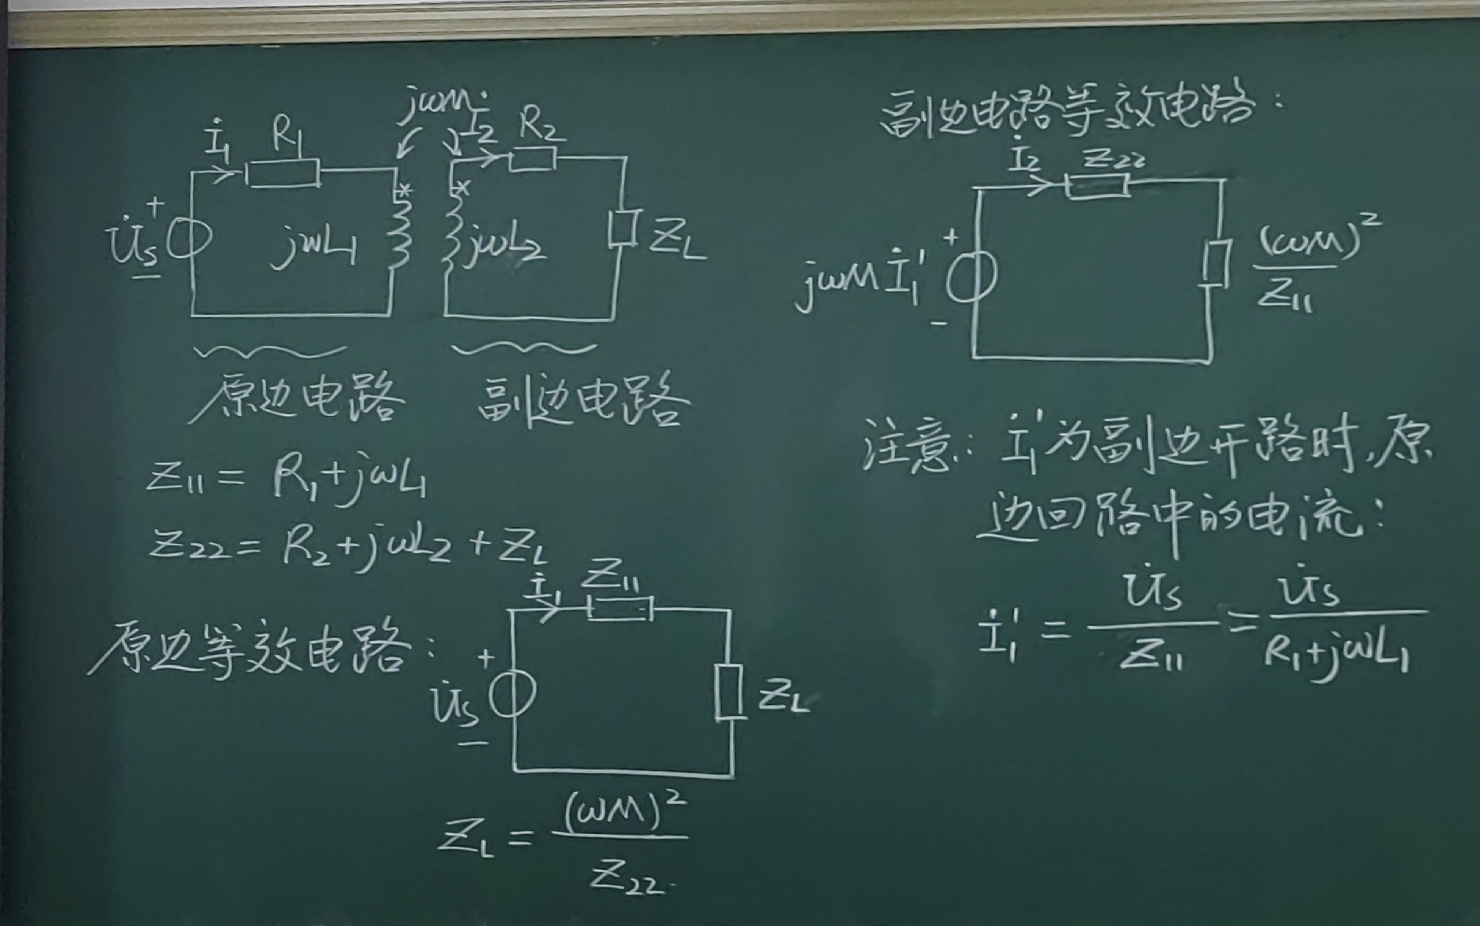 jωM
İ₁ R₁ İ₂ R₂
+ * *
U̇s jωL₁ jωL₂ Z_L
−
原边电路 副边电路
Z₁₁ = R₁+jωL₁
Z₂₂ = R₂+jωL₂+Z_L
原边等效电路:
İ₁ Z₁₁
+
U̇s Z_L
−
Z_L = (ωM)²/Z₂₂
副边电路等效电路:
İ₂ Z₂₂
+
jωMİ₁' (ωM)²/Z₁₁
−
注意: İ₁'为副边开路时,原
边回路中的电流:
İ₁' = U̇s/Z₁₁ = U̇s/(R₁+jωL₁)